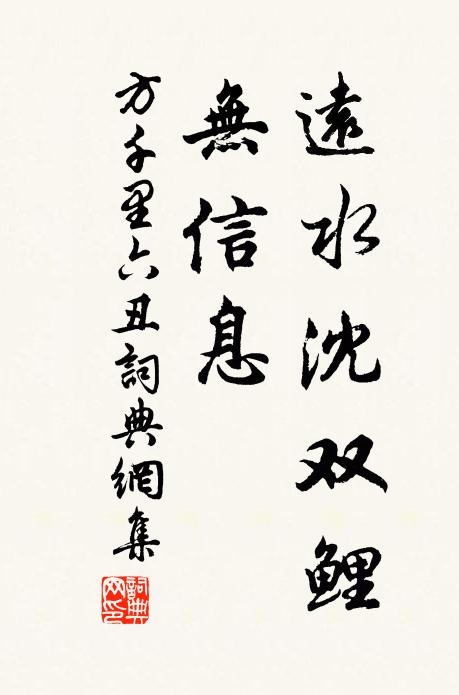 遠水沈双鲤
無信息
方千里六丑詞典網集
詞典网印